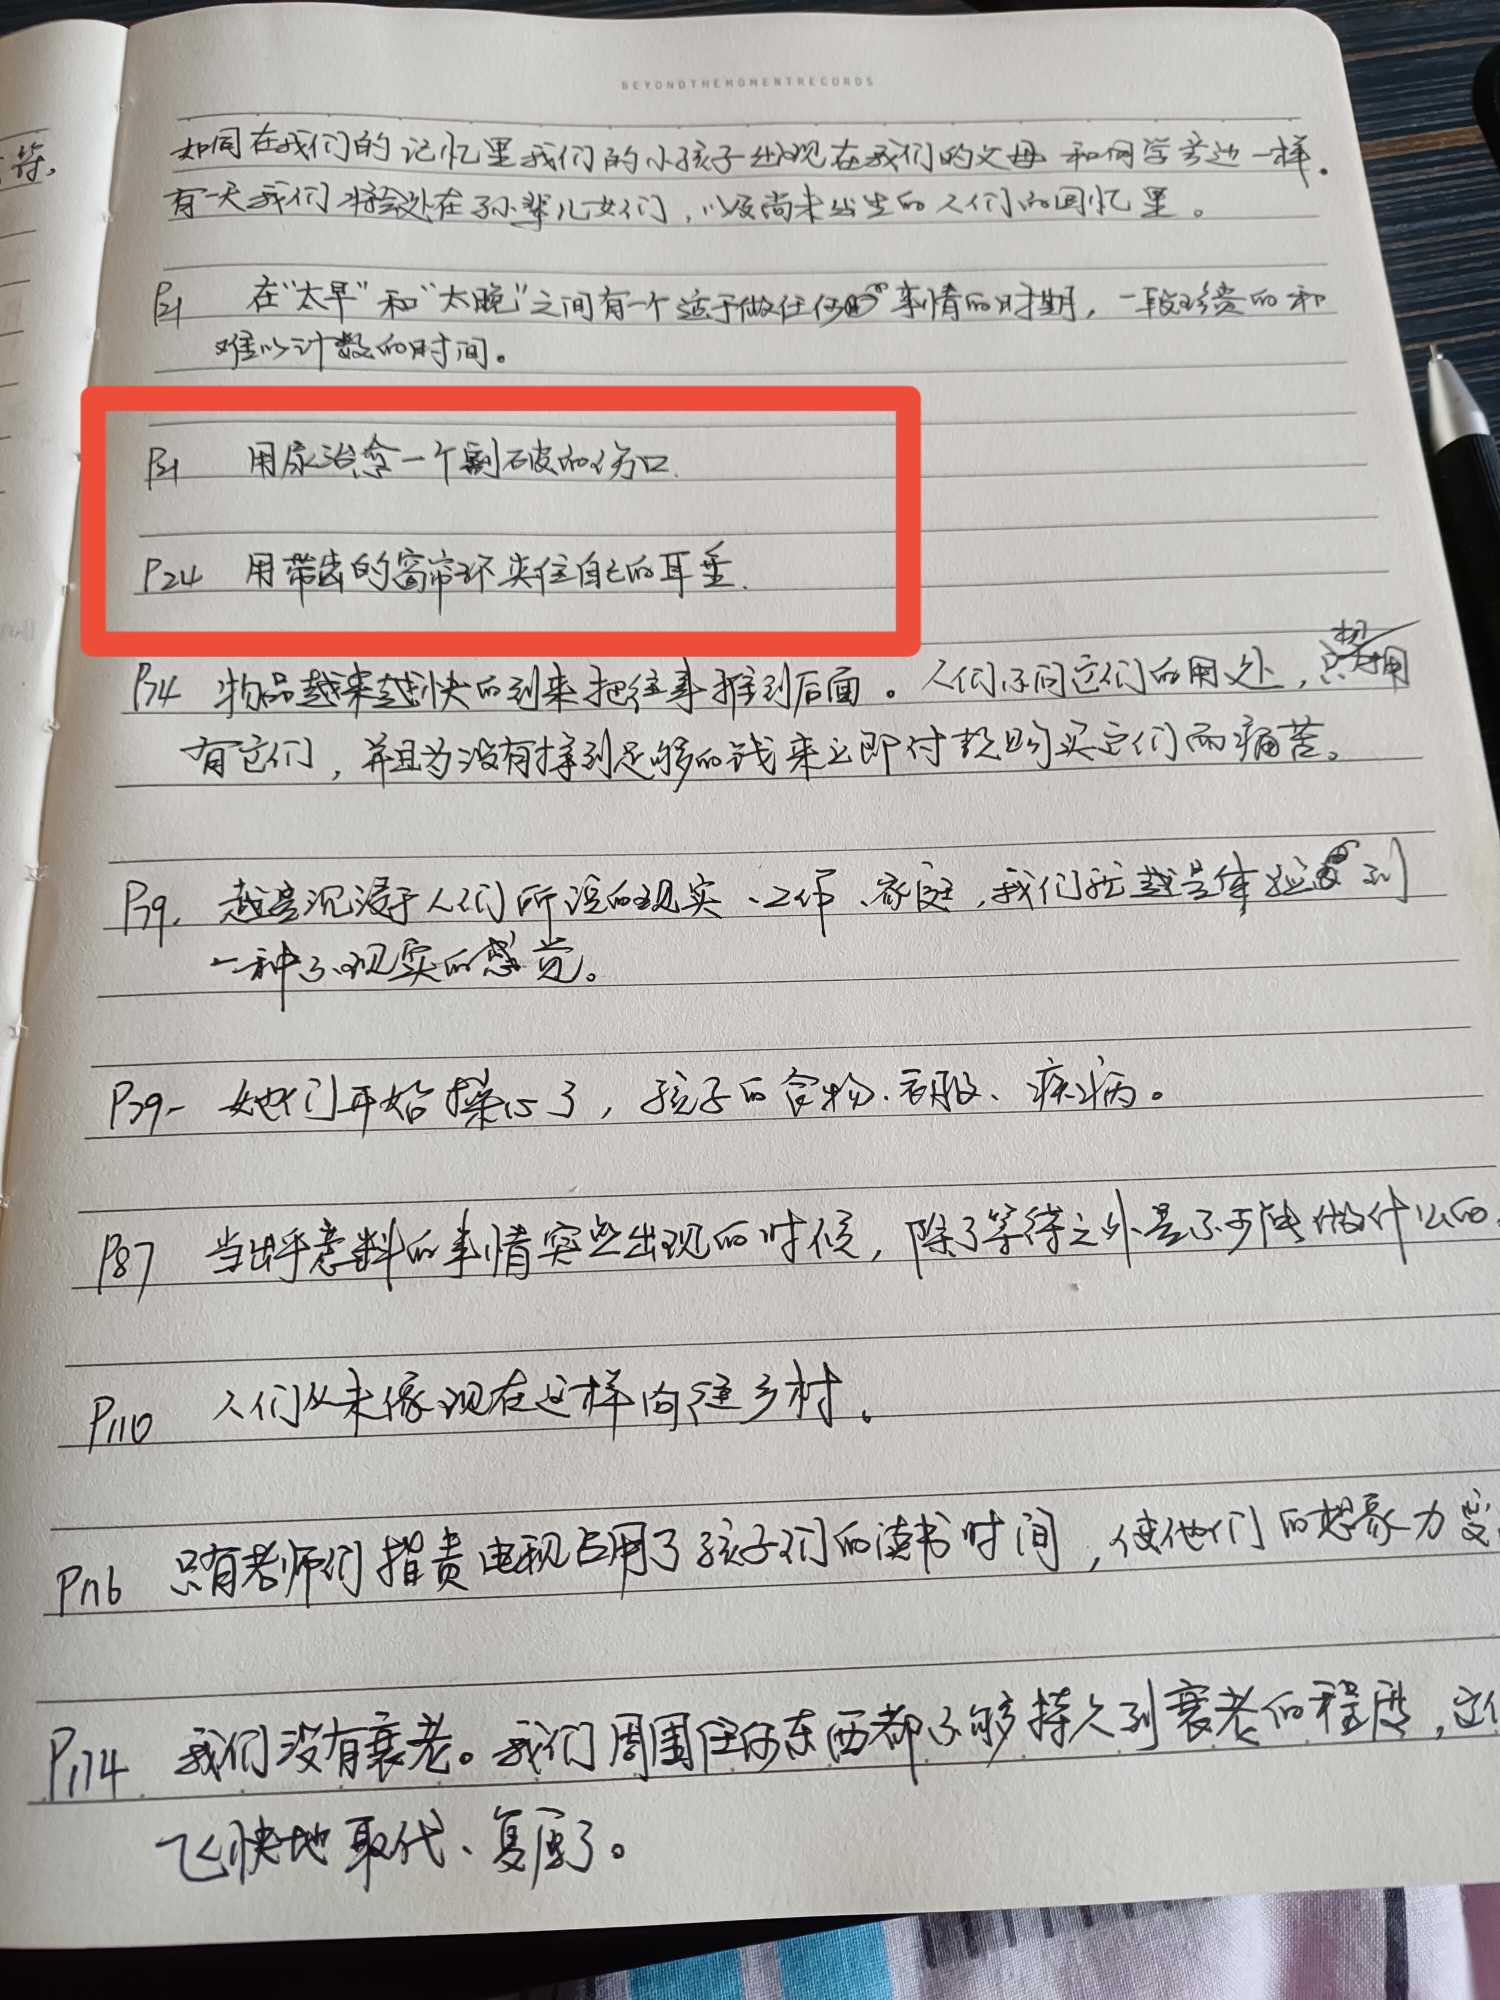 BEYONDTHEMOMENTRECORDS
等.
如同在我们的记忆里我们的小孩子出现在我们的父母和同学旁边一样.
有一天我们将会处在孙辈儿女们,以及尚未出生的人们的回忆里。
P21 在"太早"和"太晚"之间有一个适于做任何事情的时期,一段珍贵的和
难以计数的时间。
P21 用尿治愈一个割破的伤口.
P24 用带齿的窗帘环夹住自己的耳垂.
P34 物品越来越快的到来把往事推到后面。人们不问它们的用处,只想拥
有它们,并且为没有挣到足够的钱来立即付款购买它们而痛苦。
P79. 越是沉浸于人们所说的现实、工作、家庭,我们就越是体验到
一种不现实的感觉。
P79- 她们开始操心了,孩子的食物、衣服、疾病。
P87 当出乎意料的事情突然出现的时候,除了等待之外是不可能做什么的.
P110 人们从未像现在这样向往乡村。
P116 只有老师们指责电视占用了孩子们的读书时间,使他们的想象力变
P174 我们没有衰老。我们周围任何东西都不够持久到衰老的程度,它们
飞快地取代、复原了。